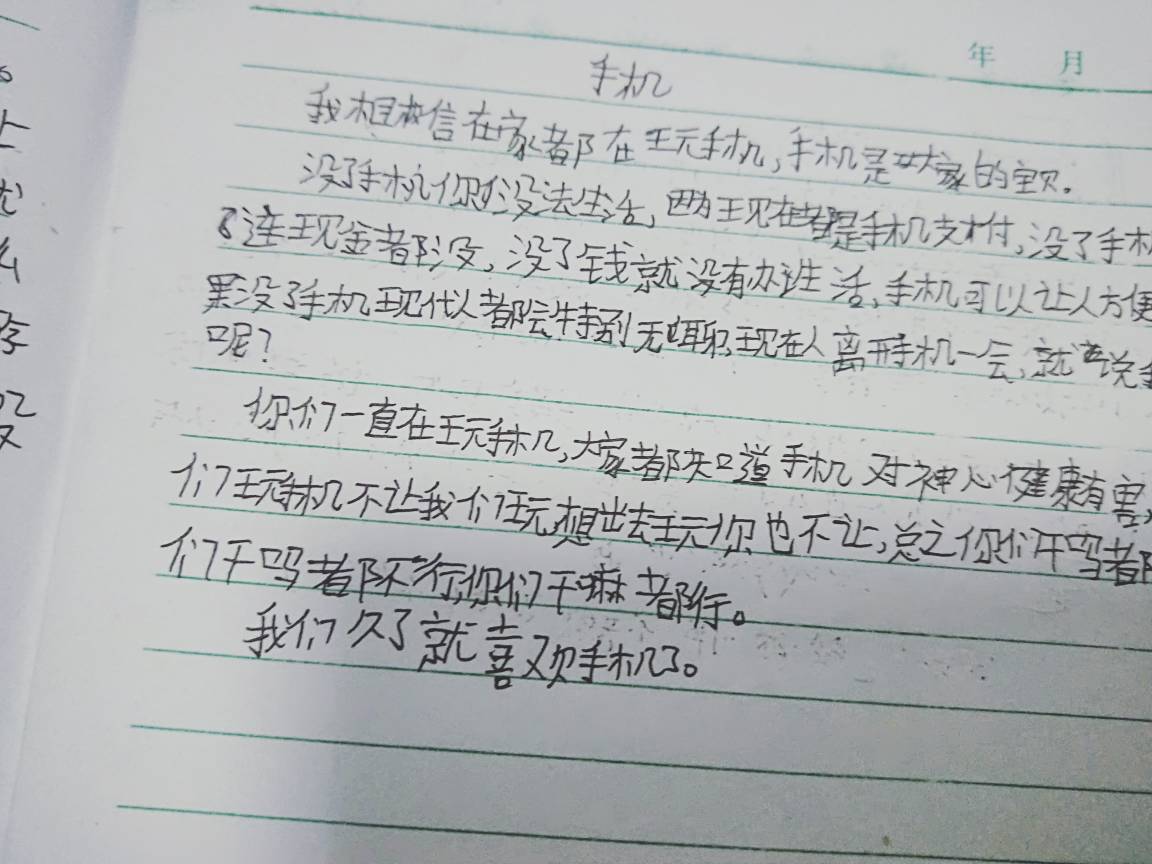 年 月
手机
我相信在家都在玩手机,手机是大家的宝贝。
没了手机你没法生活,因为现在都是手机支付,没了手机
连现金都没,没了钱就没有办法生活,手机可以让人方便
没了手机现代人都会特别无聊,现在人离开手机一会,就说手
呢?
你们一直在玩手机,大家都知道手机对神心健康有害,
们玩手机不让我们玩,想出去玩你也不让,总之你们干吗都
们干吗都不行,你们干嘛都行。
我们久了就喜欢手机了。